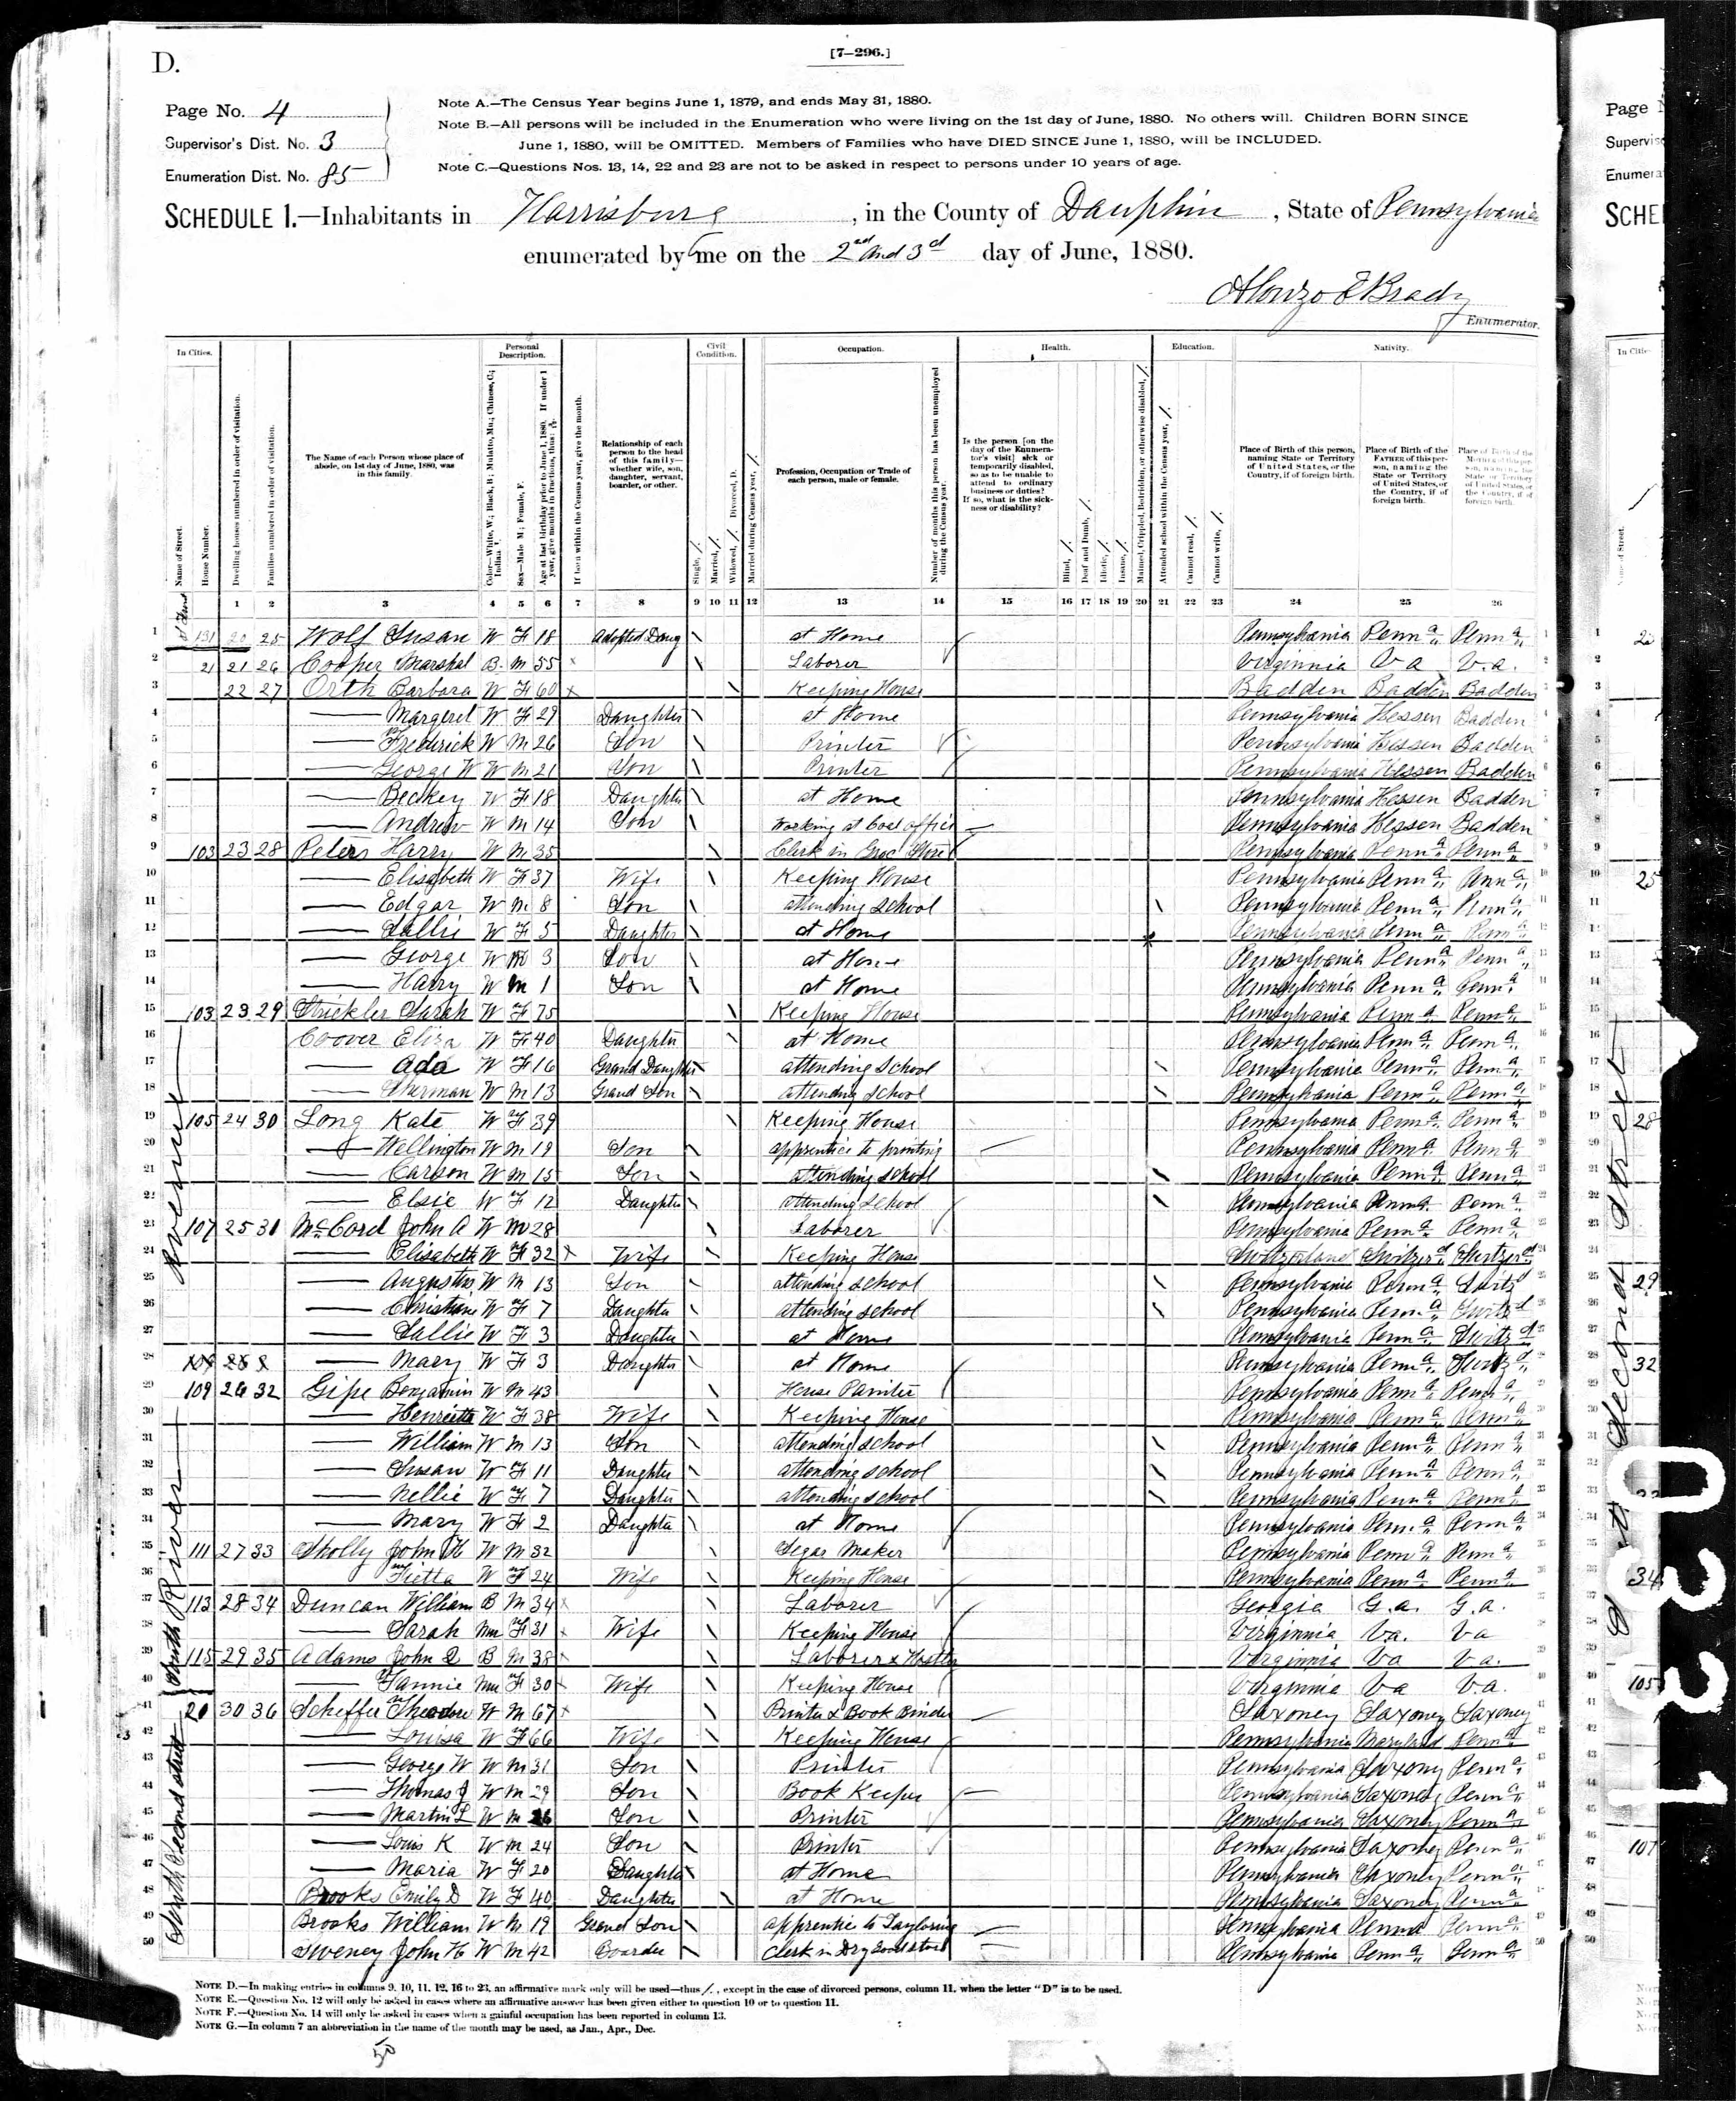 D.
[7-296.]
Page No. 4
Supervisor's Dist. No. 3
Enumeration Dist. No. 85
Note A.—The Census Year begins June 1, 1879, and ends May 31, 1880.
Note B.—All persons will be included in the Enumeration who were living on the 1st day of June, 1880. No others will. Children BORN SINCE
June 1, 1880, will be OMITTED. Members of Families who have DIED SINCE June 1, 1880, will be INCLUDED.
Note C.—Questions Nos. 13, 14, 22 and 23 are not to be asked in respect to persons under 10 years of age.
SCHEDULE 1.—Inhabitants in Harrisburg, in the County of Dauphin, State of Pennsylvania
enumerated by me on the 2nd and 3d day of June, 1880.
Alonzo E Brady
Enumerator.
In Cities. Personal Description. Civil Condition. Occupation. Health. Education. Nativity.
Name of Street. House Number. Dwelling houses numbered in order of visitation. Families numbered in order of visitation.
The Name of each Person whose place of abode, on 1st day of June, 1880, was in this family.
Relationship of each person to the head of this family—whether wife, son, daughter, servant, boarder, or other.
Profession, Occupation or Trade of each person, male or female.
Place of Birth of this person, naming State or Territory of United States, or the Country, if of foreign birth.
1 2 3 4 5 6 7 8 9 10 11 12 13 14 15 16 17 18 19 20 21 22 23 24 25 26
1 131 20 25 Wolf Susan W F 18 Adopted Daug at Home Pennsylvania Penna Penna
2 21 21 26 Cooper Marshal B M 55 Laborer Virginnia Va V.a.
3 22 27 Orth Barbara W F 60 Keeping House Badden Badden Badden
4 — Margeret W F 29 Daughter at Home Pennsylvania Hessen Badden
5 — Frederick W M 26 Son Printer Pennsylvania Hessen Badden
6 — George W W M 21 Son Printer Pennsylvania Hessen Badden
7 — Beckey W F 18 Daughter at Home Pennsylvania Hessen Badden
8 — Andrew W M 14 Son Working at Coal office Pennsylvania Hessen Badden
9 103 23 28 Peters Harry W M 35 Clerk in Groc Store Pennsylvania Penna Penna
10 — Elisabeth W F 37 Wife Keeping House Pennsylvania Penna Penna
11 — Edgar W M 8 Son attending School Pennsylvania Penna Penna
12 — Sallie W F 5 Daughter at Home Pennsylvania Penna Penna
13 — George W M 3 Son at Home Pennsylvania Penna Penna
14 — Harry W M 1 Son at Home Pennsylvania Penna Penna
15 103 23 29 Strickler Sarah W F 75 Keeping House Pennsylvania Penna Penna
16 Coover Eliza W F 40 Daughter at Home Pennsylvania Penna Penna
17 — Ada W F 16 Grand Daughter attending School Pennsylvania Penna Penna
18 — Sherman W M 13 Grand Son attending School Pennsylvania Penna Penna
19 105 24 30 Long Kate W F 39 Keeping House Pennsylvania Penna Penna
20 — Wellington W M 19 Son apprentice to printing Pennsylvania Penna Penna
21 — Carson W M 15 Son attending School Pennsylvania Penna Penna
22 — Elsie W F 12 Daughter attending School Pennsylvania Penna Penna
23 107 25 31 McCord John A W M 28 Laborer Pennsylvania Penna Penna
24 — Elisabeth W F 32 Wife Keeping House
25 — Augustus W M 13 Son attending School Pennsylvania Penna
26 — Christian W F 7 Daughter attending School Pennsylvania Penna
27 — Sallie W F 3 Daughter at Home Pennsylvania Penna
28 — Mary W F 3 Daughter at Home Pennsylvania Penna
29 109 26 32 Gipe Benjamin W M 43 House Painter Pennsylvania Penna Penna
30 — Henrietta W F 38 Wife Keeping House Pennsylvania Penna Penna
31 — William W M 13 Son attending School Pennsylvania Penna Penna
32 — Susan W F 11 Daughter attending School Pennsylvania Penna Penna
33 — Nellie W F 7 Daughter attending School Pennsylvania Penna Penna
34 — Mary W F 2 Daughter at Home Pennsylvania Penna Penna
35 111 27 33 Sholly John H W M 32 Segar Maker Pennsylvania Penna Penna
36 W F 24 Wife Keeping House Pennsylvania Penna Penna
37 113 28 34 Duncan William B M 34 Laborer Georgia G.a. G.a.
38 — Sarah Mu F 31 Wife Keeping House Virginnia Va. Va
39 115 29 35 Adams John Q B M 38 Laborer & Hostler Virginnia Va Va.
40 — Fannie Mu F 30 Wife Keeping House Virginnia Va V.a.
41 20 30 36 Scheffer Theodore W M 67 Printer & Book Binder Saxoney Saxoney Saxoney
42 — Louisa W F 66 Wife Keeping House Pennsylvania Maryland Penna
43 — George W W M 31 Son Printer Pennsylvania Saxony Penna
44 — Thomas J W M 29 Son Book Keeper Pennsylvania Saxoney Penna
45 — Martin L W M 26 Son Printer Pennsylvania Saxoney Penna
46 — Louis K W M 24 Son Printer Pennsylvania Saxoney Penna
47 — Maria W F 20 Daughter at Home Pennsylvania Saxoney Penna
48 Brooks Emily D W F 40 Daughter at Home Pennsylvania Saxoney Penna
49 Brooks William W M 19 Grand Son apprentice to Tayloring Pennsylvania Penna Penna
50 Sweney John H W M 42 Boarder Clerk in Dry Good store Pennsylvania Penna Penna
South River Avenue
South Second Street
NOTE D.—In making entries in columns 9, 10, 11, 12, 16 to 23, an affirmative mark only will be used—thus /, except in the case of divorced persons, column 11, when the letter "D" is to be used.
NOTE E.—Question No. 12 will only be asked in cases where an affirmative answer has been given either to question 10 or to question 11.
NOTE F.—Question No. 14 will only be asked in cases when a gainful occupation has been reported in column 13.
NOTE G.—In column 7 an abbreviation in the name of the month may be used, as Jan., Apr., Dec.
50
0331